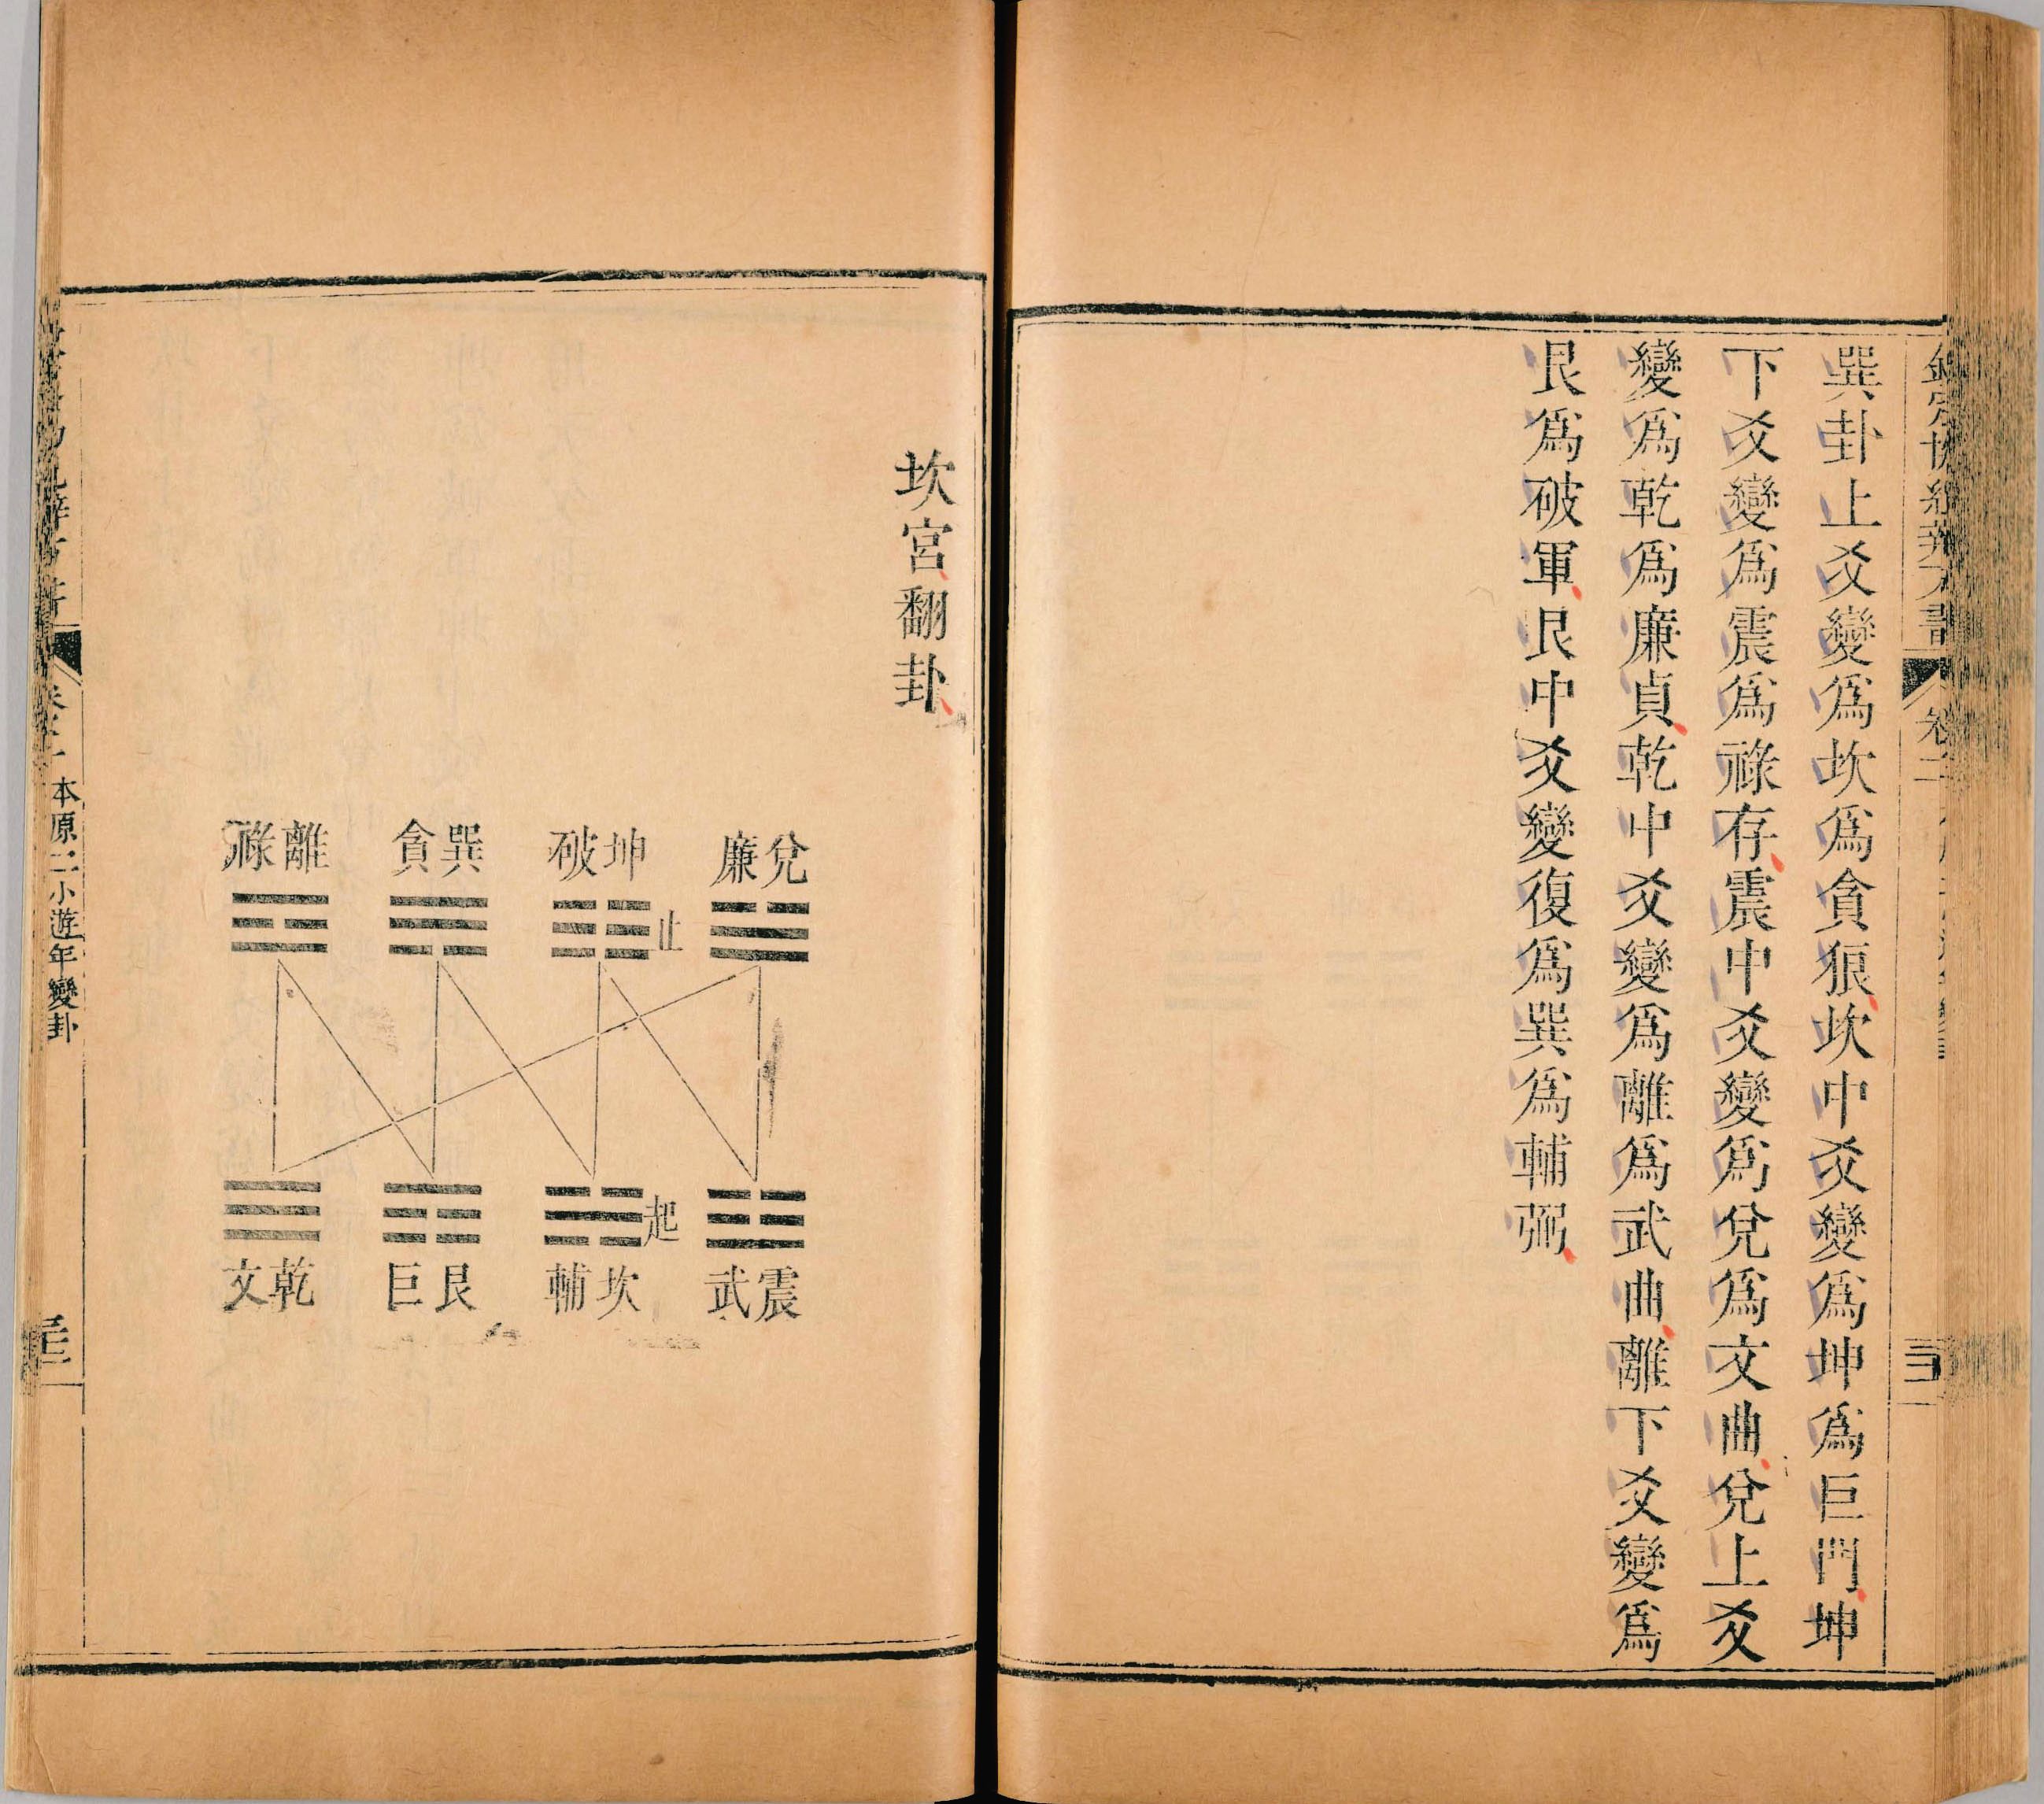 巽卦上爻變爲坎爲貪狼坎中爻變爲坤爲巨門坤
下爻變爲震爲祿存震中爻變爲兌爲文曲兌上爻
變爲乾爲廉貞乾中爻變爲離爲武曲離下爻變爲
艮爲破軍艮中爻變復爲巽爲輔弼
坎宮翻卦
兌廉
坤破
止
巽貪
離祿
震武
坎輔
起
艮巨
乾文
本原二小遊年變卦